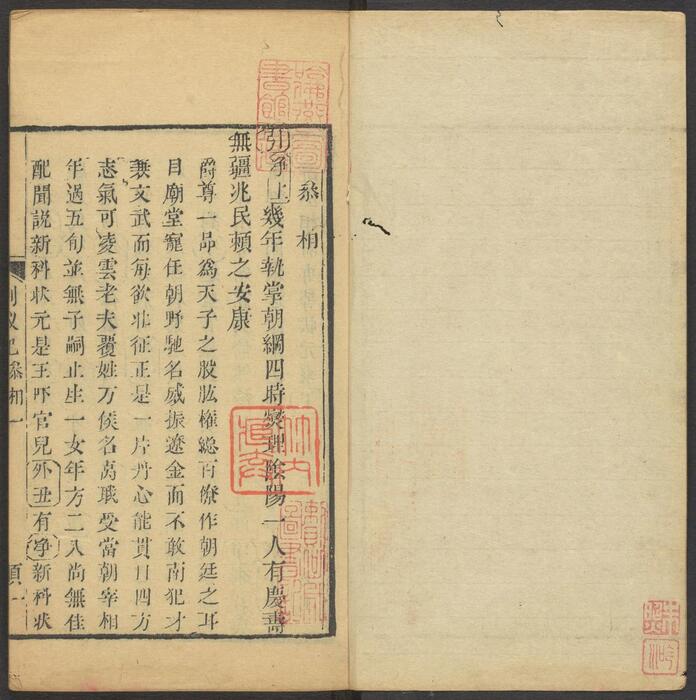 叅相
引 淨上 幾年執掌朝綱四時燮理陰陽一人有慶壽
無疆兆民賴之安康
爵尊一品為天子之股肱權總百僚作朝廷之耳
目廟堂寵任朝野馳名威振遼金而不敢南犯才
兼文武而每欲北征正是一片丹心能貫日四方
志氣可凌雲老夫覆姓万俟名卨職受當朝宰相
年過五旬並無子嗣止生一女年方二八尚無佳
配聞說新科状元是王 官兒外丑有淨新科状
釵記叅相一 一